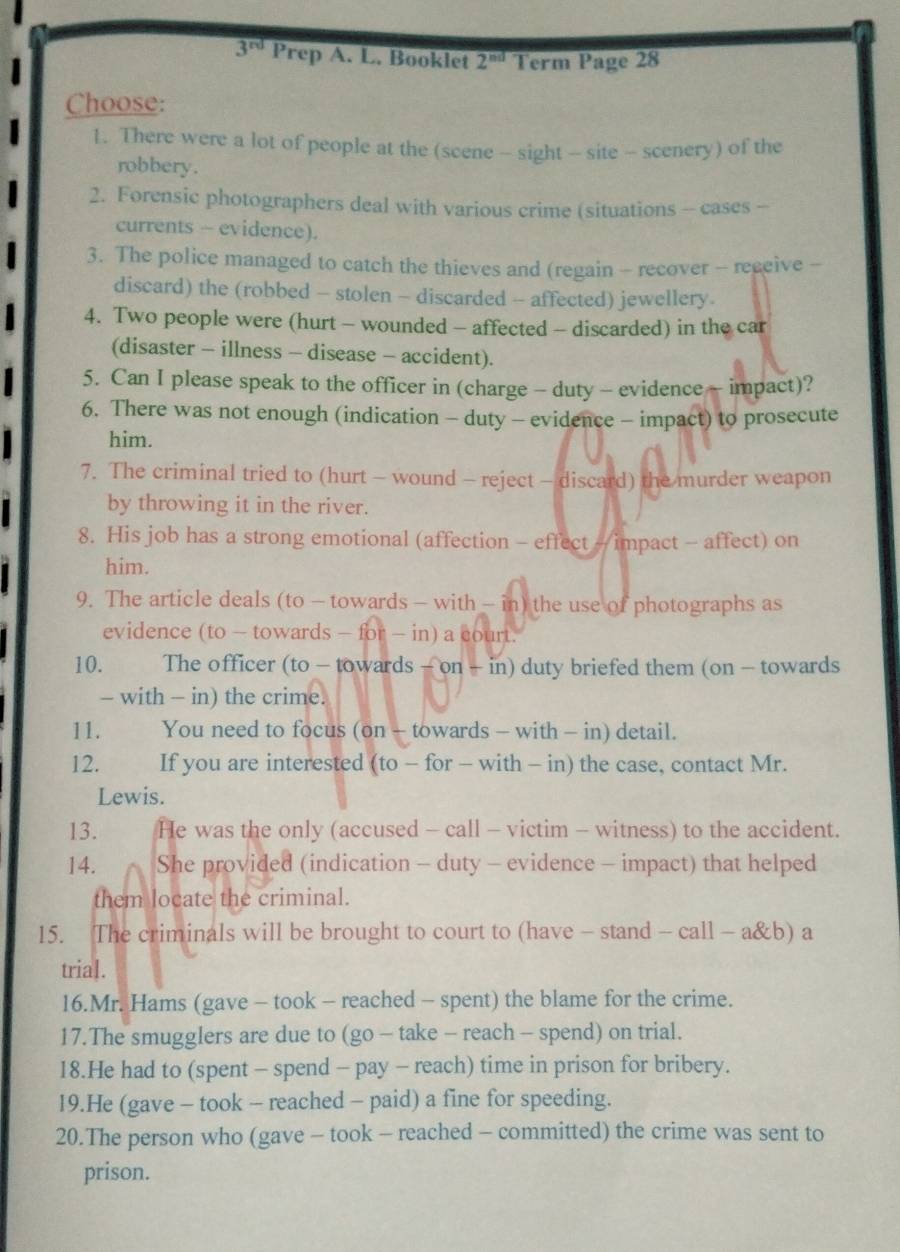 3rd Prep A. L. Booklet 2nd Term Page 28
Choose:
1. There were a lot of people at the (scene – sight – site – scenery) of the
robbery.
2. Forensic photographers deal with various crime (situations – cases –
currents – evidence).
3. The police managed to catch the thieves and (regain – recover – receive –
discard) the (robbed – stolen – discarded – affected) jewellery.
4. Two people were (hurt – wounded – affected – discarded) in the car
(disaster – illness – disease – accident).
5. Can I please speak to the officer in (charge – duty – evidence – impact)?
6. There was not enough (indication – duty – evidence – impact) to prosecute
him.
7. The criminal tried to (hurt – wound – reject – discard) the murder weapon
by throwing it in the river.
8. His job has a strong emotional (affection – effect – impact – affect) on
him.
9. The article deals (to – towards – with – in) the use of photographs as
evidence (to – towards – for – in) a court.
10. The officer (to – towards – on – in) duty briefed them (on – towards
– with – in) the crime.
11. You need to focus (on – towards – with – in) detail.
12. If you are interested (to – for – with – in) the case, contact Mr.
Lewis.
13. He was the only (accused – call – victim – witness) to the accident.
14. She provided (indication – duty – evidence – impact) that helped
them locate the criminal.
15. The criminals will be brought to court to (have – stand – call – a&b) a
trial.
16.Mr. Hams (gave – took – reached – spent) the blame for the crime.
17.The smugglers are due to (go – take – reach – spend) on trial.
18.He had to (spent – spend – pay – reach) time in prison for bribery.
19.He (gave – took – reached – paid) a fine for speeding.
20.The person who (gave – took – reached – committed) the crime was sent to
prison.
Mrs. Mona Gamil